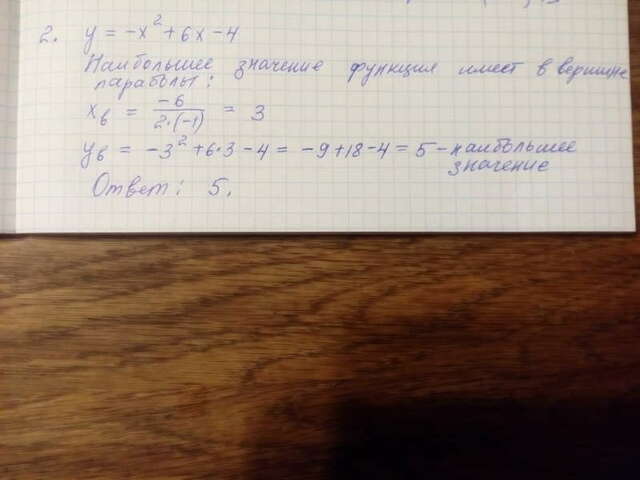 2. y = -x² + 6x - 4
Наибольшее значение функция имеет в вершине
параболы:
xв = -6 / 2·(-1) = 3
yв = -3² + 6·3 - 4 = -9 + 18 - 4 = 5 - наибольшее
значение
Ответ: 5.